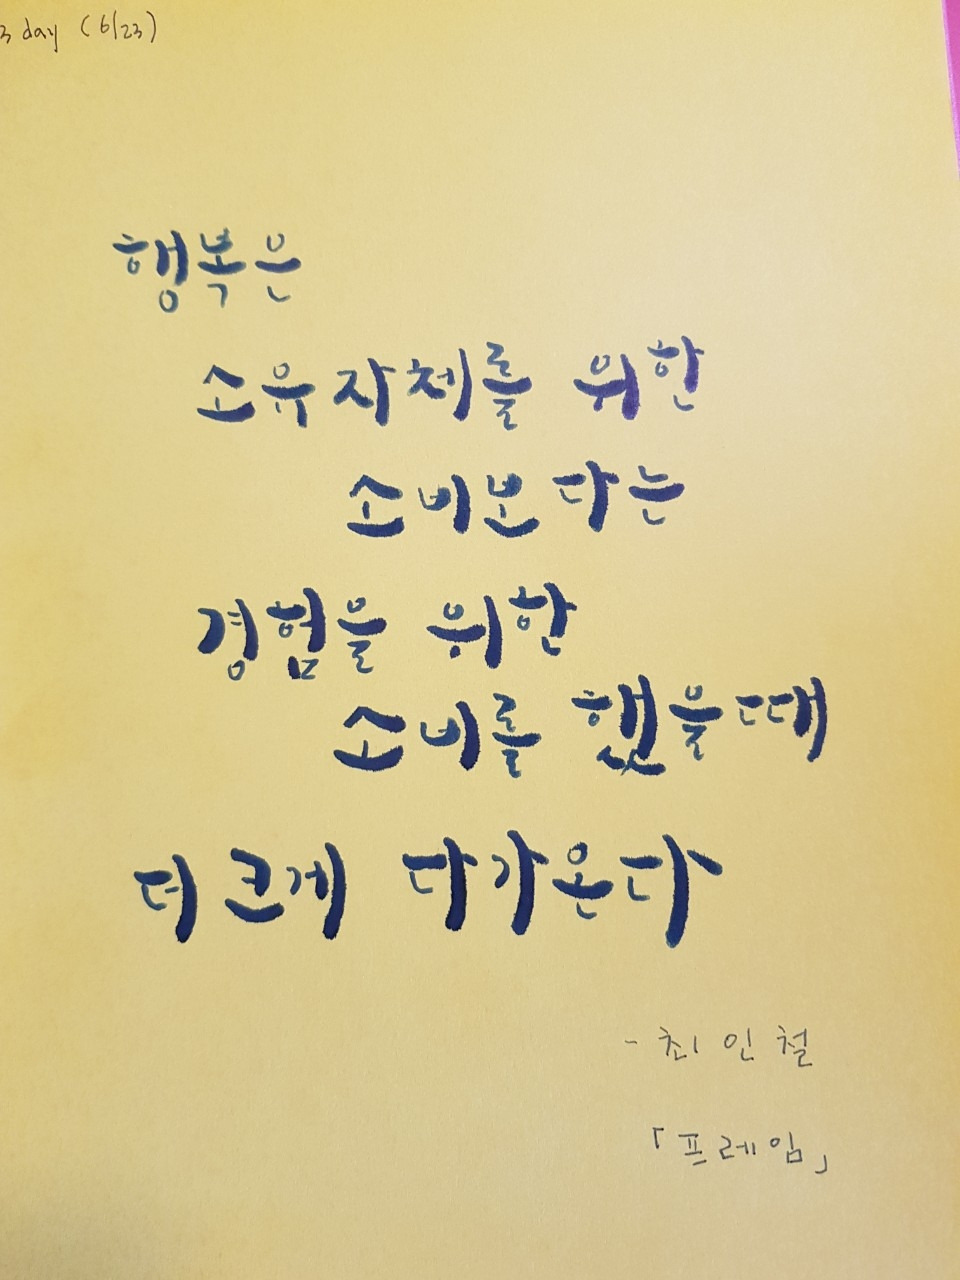 3 day (6/23)
행복은
소유자체를 위한
소비보다는
경험을 위한
소비를 했을때
더크게 다가온다
- 최인철
「프레임」